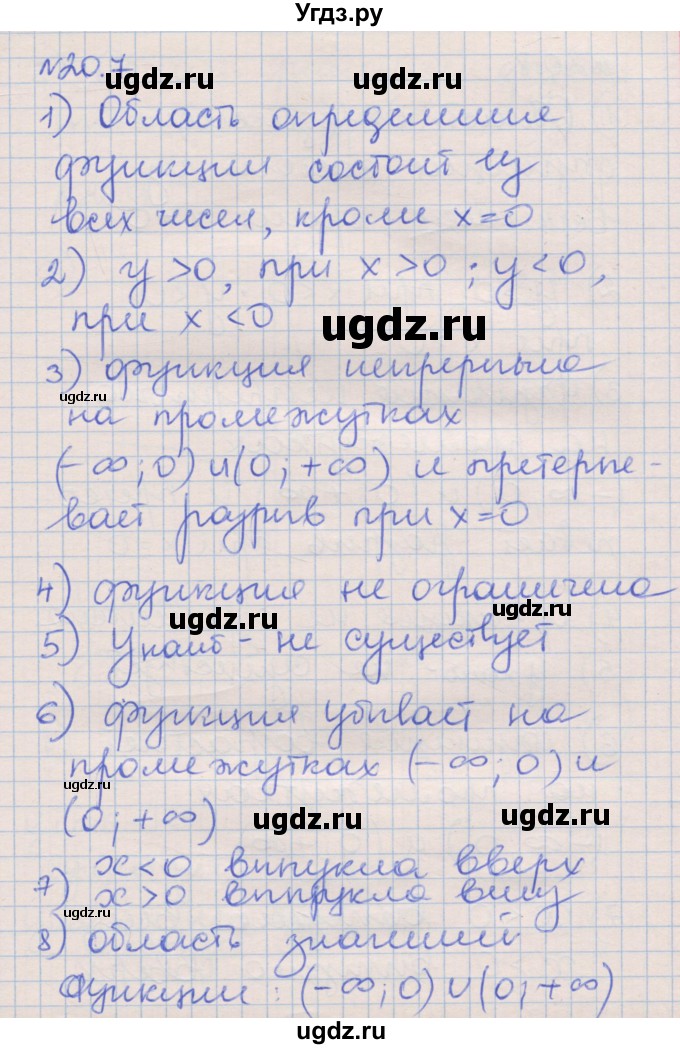 Угдз.ру
№20.7
ugdz.ru ugdz.ru
1) Область определения
функции состоит из
ugdz.ru ugdz.ru
всех чисел, кроме x=0
2) y>0, при x>0; y<0,
при x<0
ugdz.ru
3) функция непрерывна
ugdz.ru
на промежутках
(-∞; 0) u (0; +∞) и претерпе-
ugdz.ru ugdz.ru
вает разрыв при x=0
4) функция не ограничена
ugdz.ru ugdz.ru
5) Yнаиб - не существует
6) функция убывает на
ugdz.ru ugdz.ru
промежутках (-∞; 0) и
ugdz.ru
(0; +∞)
ugdz.ru ugdz.ru
7) x<0 выпукла вверх
x>0 выпукла вниз
ugdz.ru
8) область значений
ugdz.ru ugdz.ru
функции: (-∞; 0) U (0; +∞)
ugdz.ru